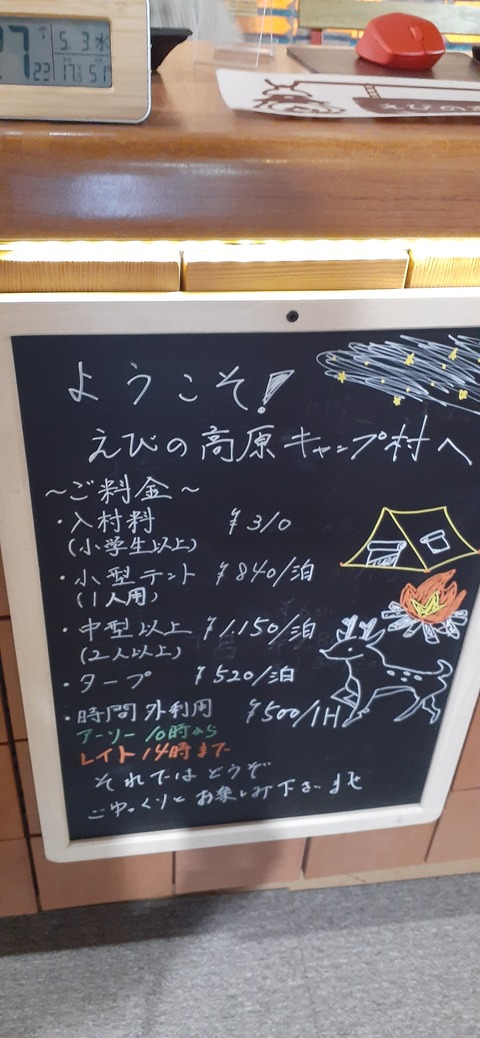 27 23
5.3 水
17℃ 51
えびの
ようこそ!
えびの高原キャンプ村へ
～ご料金～
・入村料 ¥310
(小学生以上)
・小型テント ¥840/泊
(1人用)
・中型以上 ¥1,150/泊
(2人以上)
・タープ ¥520/泊
・時間外利用 ¥500/1H
アーリー 10時から
レイト 14時まで
それではどうぞ
ごゆっくりと お楽しみ下さいませ